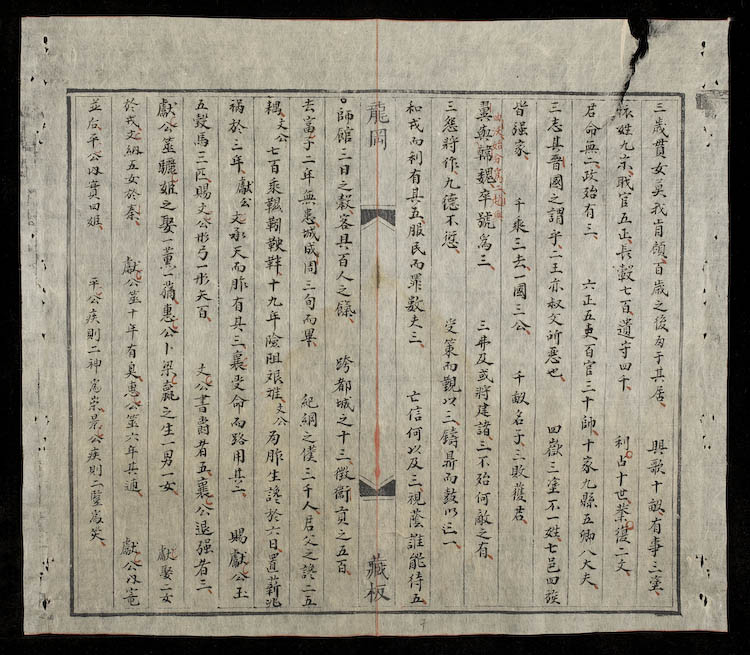 三歲貫女莫我肯顧、百歲之後歸于其居、 輿歌十畝有事三塗、
懷姓九宗、職官五正長轂七百、遺守四千、 利占十世業復二文、
君命無二政殆有三、 六正五吏百官三十帥、十家九縣五卿八大夫、
三志其晉國之謂乎、二王亦叔父所惡也、 四嶽三塗不一姓七邑四族
皆强家、 千乘三去一國三公、 千畝名子三敗獲君、
翼與韓魏卒號為三、 三并及或將建諸三不殆何敵之有
三怨將作、九德不愆、 受策而觀以三、鑄鼎而鼓以一、
和戎而利有其五、服民而罪數夫三、 亡信何以及三視蔭誰能待五
龍岡
藏板
師館三日之穀客具百人之餼、 跨都城之十三、徵衛貢之五百、
去富子二年無患、城成周三旬而畢、 紀綱之僕三千人君父之讐二五
耦、文公七百乘韅靷鞅靽、十九年險阻艱難、文公為胙生讒於六日置薪兆
禍於三年、獻公 文承天而胙有其三襄受命而賂用其三、 賜獻公玉
五瑴馬三匹、賜文公彤弓一彤矢百、 文公書爵者五、襄公退强者三、
獻公筮驪姬之娶一薰一蕕惠公卜梁嬴之生一男一女、 獻娶二女
於戎文納五女於秦、 獻公筮十年有臭惠公筮六年其逋、 獻公以寵
並后、平公以實四姬、 平公疾則二神為祟景公疾則二豎為災、